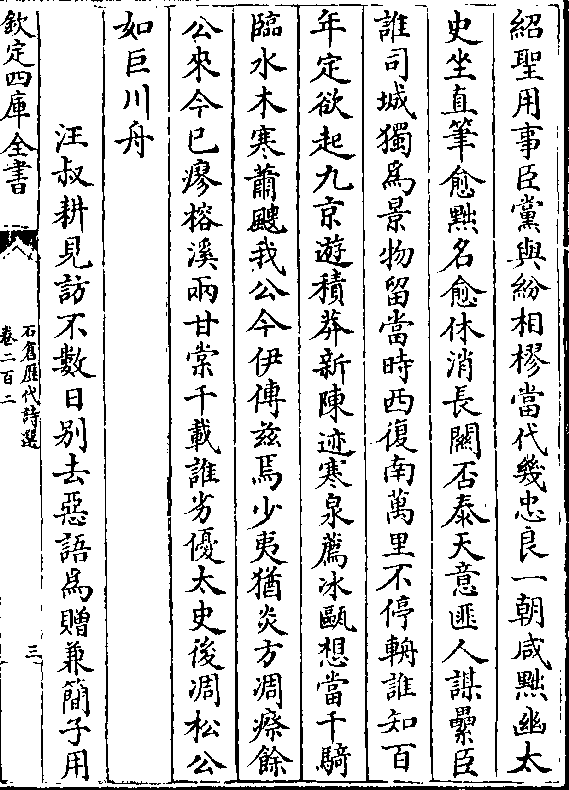 紹聖用事臣黨與紛相樛當代幾忠良一朝咸黜幽太
史坐直筆愈黜名愈休消長關否泰天意匪人謀纍臣
誰司城獨爲景物留當時西復南萬里不停輈誰知百
年定欲起九京遊積莽新陳迹寒泉薦冰甌想當千騎
臨水木寒蕭颼我公今伊傅兹焉少夷猶炎方凋瘵餘
公來今已瘳榕溪兩甘棠千載誰劣優太史後凋松公
如巨川舟
汪叔耕見訪不數日别去惡語爲贈兼簡子用
欽定四庫全書
石倉歷代詩選
卷二百二
三